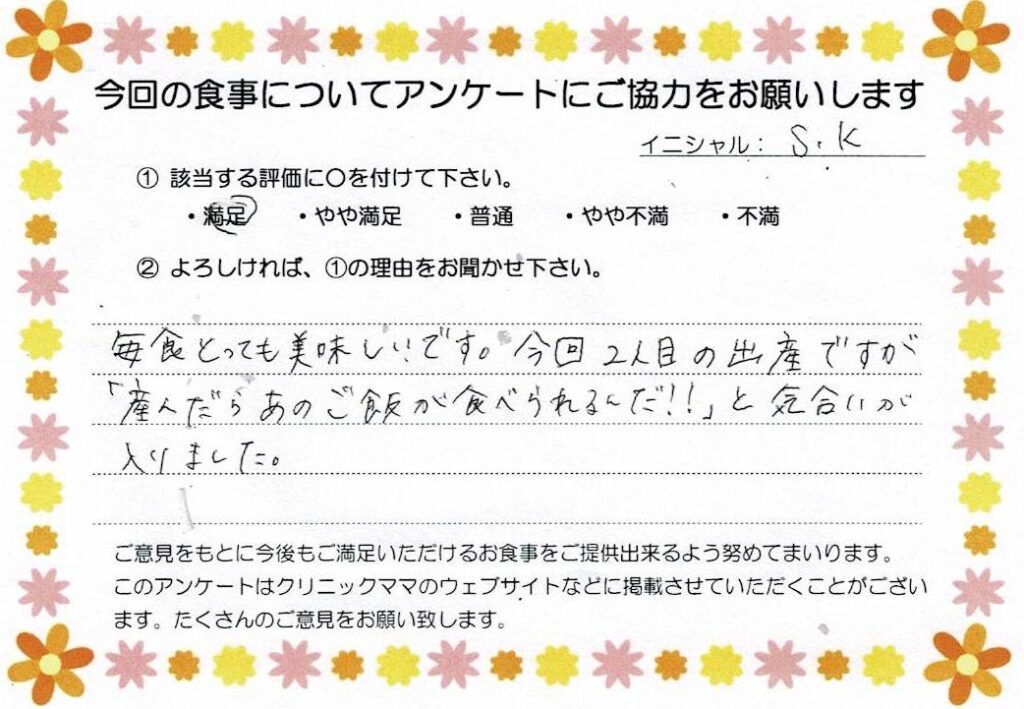 今回の食事についてアンケートにご協力をお願いします
イニシャル： S.K
① 該当する評価に○を付けて下さい。
・満足 ・やや満足 ・普通 ・やや不満 ・不満
② よろしければ、①の理由をお聞かせ下さい。
毎食とっても美味しいです。今回2人目の出産ですが
「産んだらあのご飯が食べられるんだ!!」と気合いが
入りました。
ご意見をもとに今後もご満足いただけるお食事をご提供出来るよう努めてまいります。
このアンケートはクリニックママのウェブサイトなどに掲載させていただくことがござい
ます。たくさんのご意見をお願い致します。